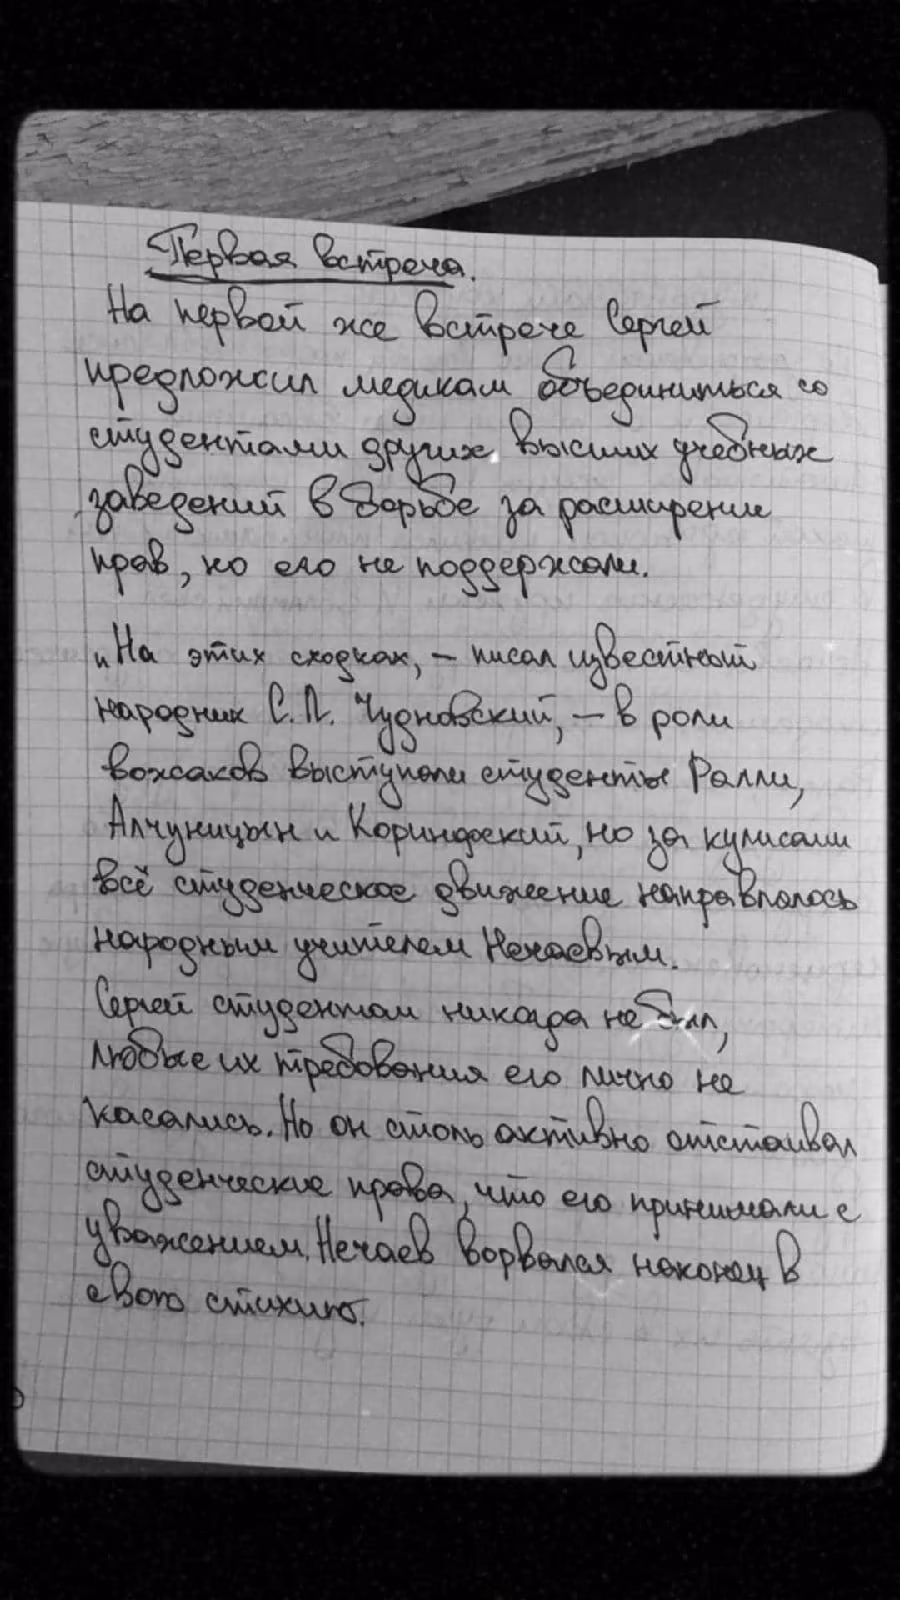 Первая встреча.
На первой же встрече Сергей
предложил медикам объединиться со
студентами других высших учебных
заведений в борьбе за расширение
прав, но его не поддержали.
„На этих сходках, – писал известный
народник С. Л. Чудновский, – в роли
вожаков выступали студенты Ралли,
Алчуницын и Коринфский, но за кулисами
всё студенческое движение направлялось
народным учителем Нечаевым.
Сергей студентом никогда не был,
любые их требования его лично не
касались. Но он столь активно отстаивал
студенческие права, что его принимали с
уважением. Нечаев ворвался наконец в
свою стихию.